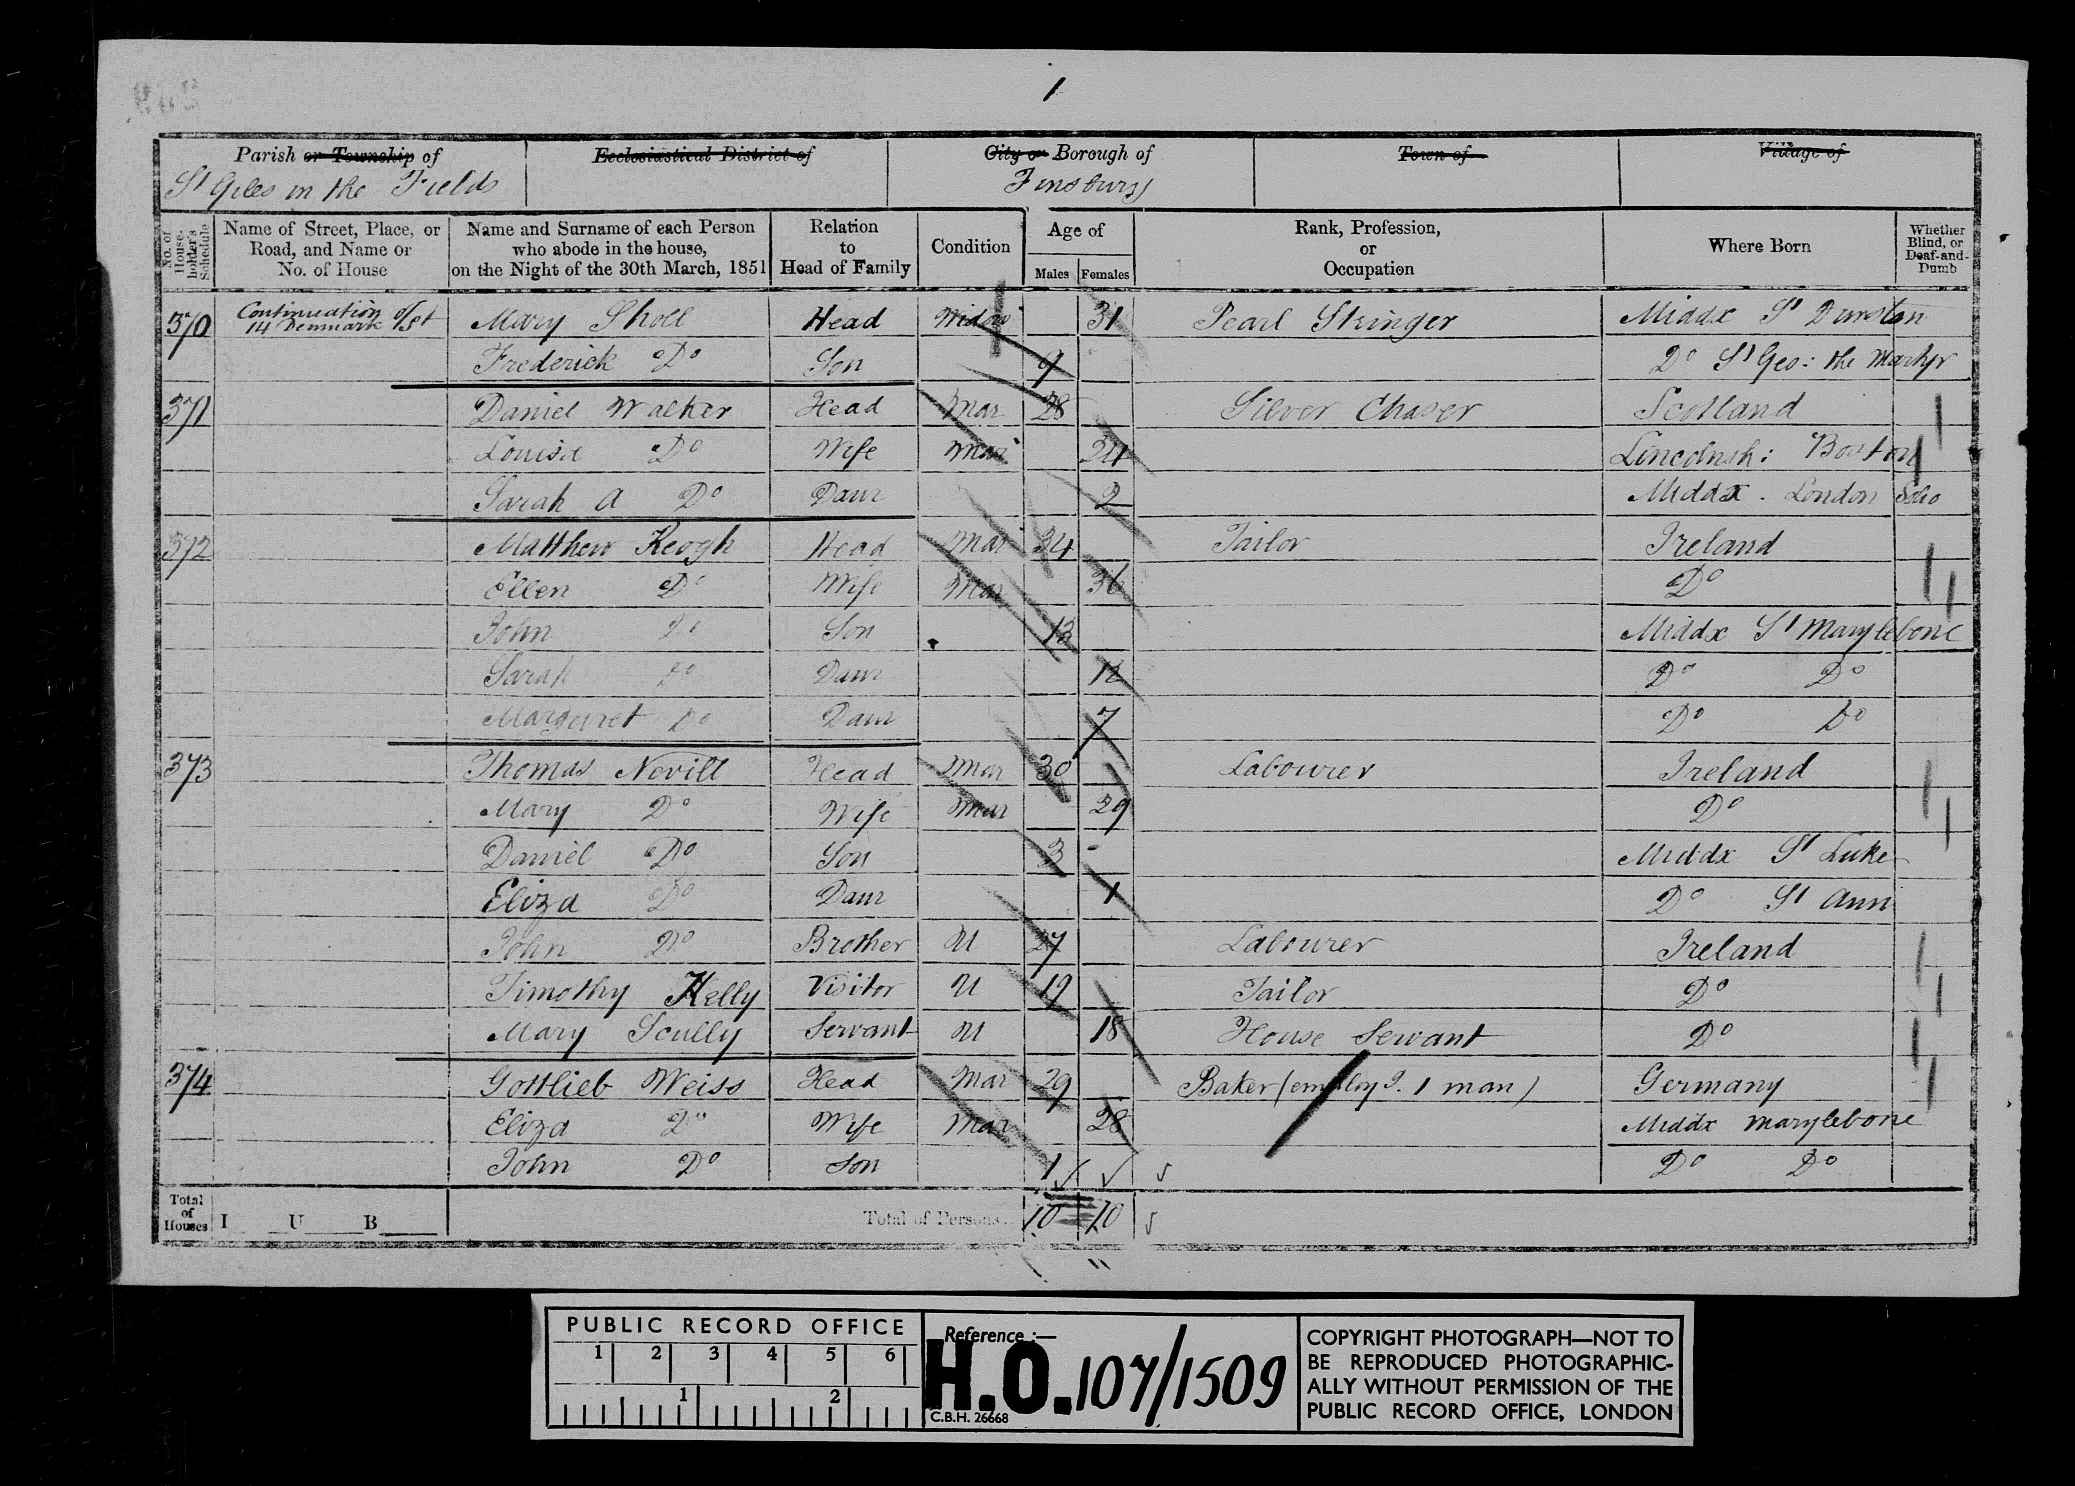 1
Parish or Township of
St Giles in the Fields
Ecclesiastical District of
City or Borough of
Finsbury
Town of
Village of
No. of House-holder's Schedule
Name of Street, Place, or Road, and Name or No. of House
Name and Surname of each Person who abode in the house, on the Night of the 30th March, 1851
Relation to Head of Family
Condition
Age of
Males
Females
Rank, Profession, or Occupation
Where Born
Whether Blind, or Deaf-and-Dumb
370 Continuation of 14 Denmark St Mary Sholl Head Widow 31 Pearl Stringer Middx St Dunstan
Frederick Do Son 9 Do St Geo: the Martyr
371 Daniel Walker Head Mar 28 Silver Chaser Scotland
Louisa Do Wife Mar 24 Lincolnsh: Boston
Sarah A Do Daur 2 Middx. London Soho
372 Matthew Keogh Head Mar 34 Tailor Ireland
Ellen Do Wife Mar 36 Do
John Do Son 13 Middx St Marylebone
Sarah Do Daur 12 Do Do
Margaret Do Daur 7 Do Do
373 Thomas Nevill Head Mar 30 Labourer Ireland
Mary Do Wife Mar 29 Do
Daniel Do Son 3 Middx St Luke
Eliza Do Daur 1 Do St Ann
John Do Brother U 27 Labourer Ireland
Timothy Kelly Visitor U 19 Tailor Do
Mary Scully Servant U 18 House Servant Do
374 Gottlieb Weiss Head Mar 29 Baker (employg. 1 man) Germany
Eliza Do Wife Mar 28 Middx Marylebone
John Do Son 1 Do Do
Total of Houses I U B Total of Persons 10 10
PUBLIC RECORD OFFICE
1 2 3 4 5 6
1 2
Reference :—
H.O. 107/1509
C.B.H. 26668
COPYRIGHT PHOTOGRAPH—NOT TO
BE REPRODUCED PHOTOGRAPHIC-
ALLY WITHOUT PERMISSION OF THE
PUBLIC RECORD OFFICE, LONDON